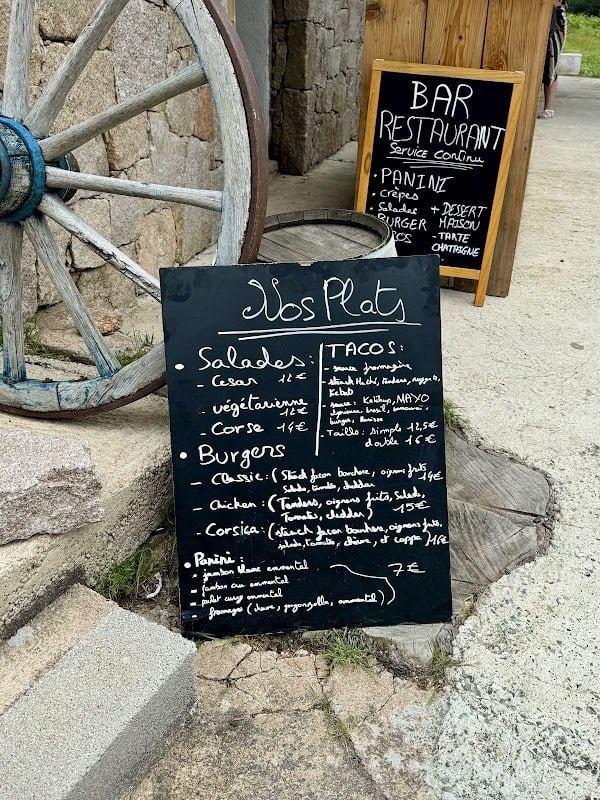 BAR
RESTAURANT
Service continu
• PANINI
• Crêpes
• Salades
BURGER
+ DESSERT
MAISON
- TARTE
CHATAIGNE
Nos Plats
• Salades:
- Cesar 12 €
- végétarienne
12 €
- Corse 14 €
TACOS:
- sauce fromagère
- steack Haché, tenders, nuggets,
Kebab
- sauce: Ketchup, MAYO
algérienne, brasil, samourai,
burger, Harissa
- Taille: simple 12,5€
double 16 €
• Burgers
- Classic: (Steack façon bouchère, oignons frits,
Salade, tomates, cheddar) 14€
- Chicken: (Tenders, oignons frits, Salade,
Tomate, cheddar) 15€
- Corsica: (steack façon bouchère, oignons frits,
salade, tomates, chèvre, et coppa) 16€
• Panini:
jambon blanc emmental
Jambon cru emmental
poulet curry emmental
fromages (chèvre, gorgonzolla, emmental) 7€